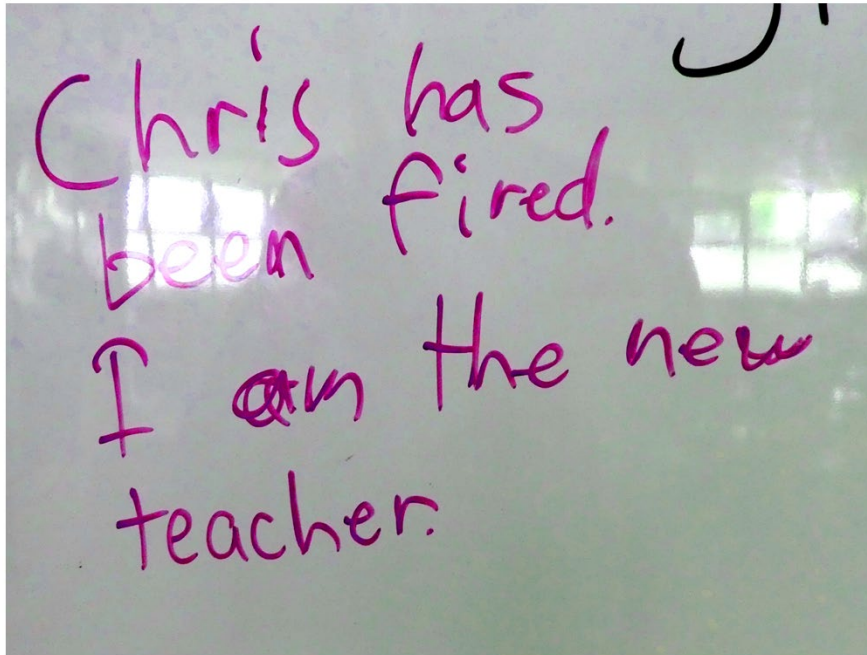 Chris has
been fired.
I am the new
teacher.